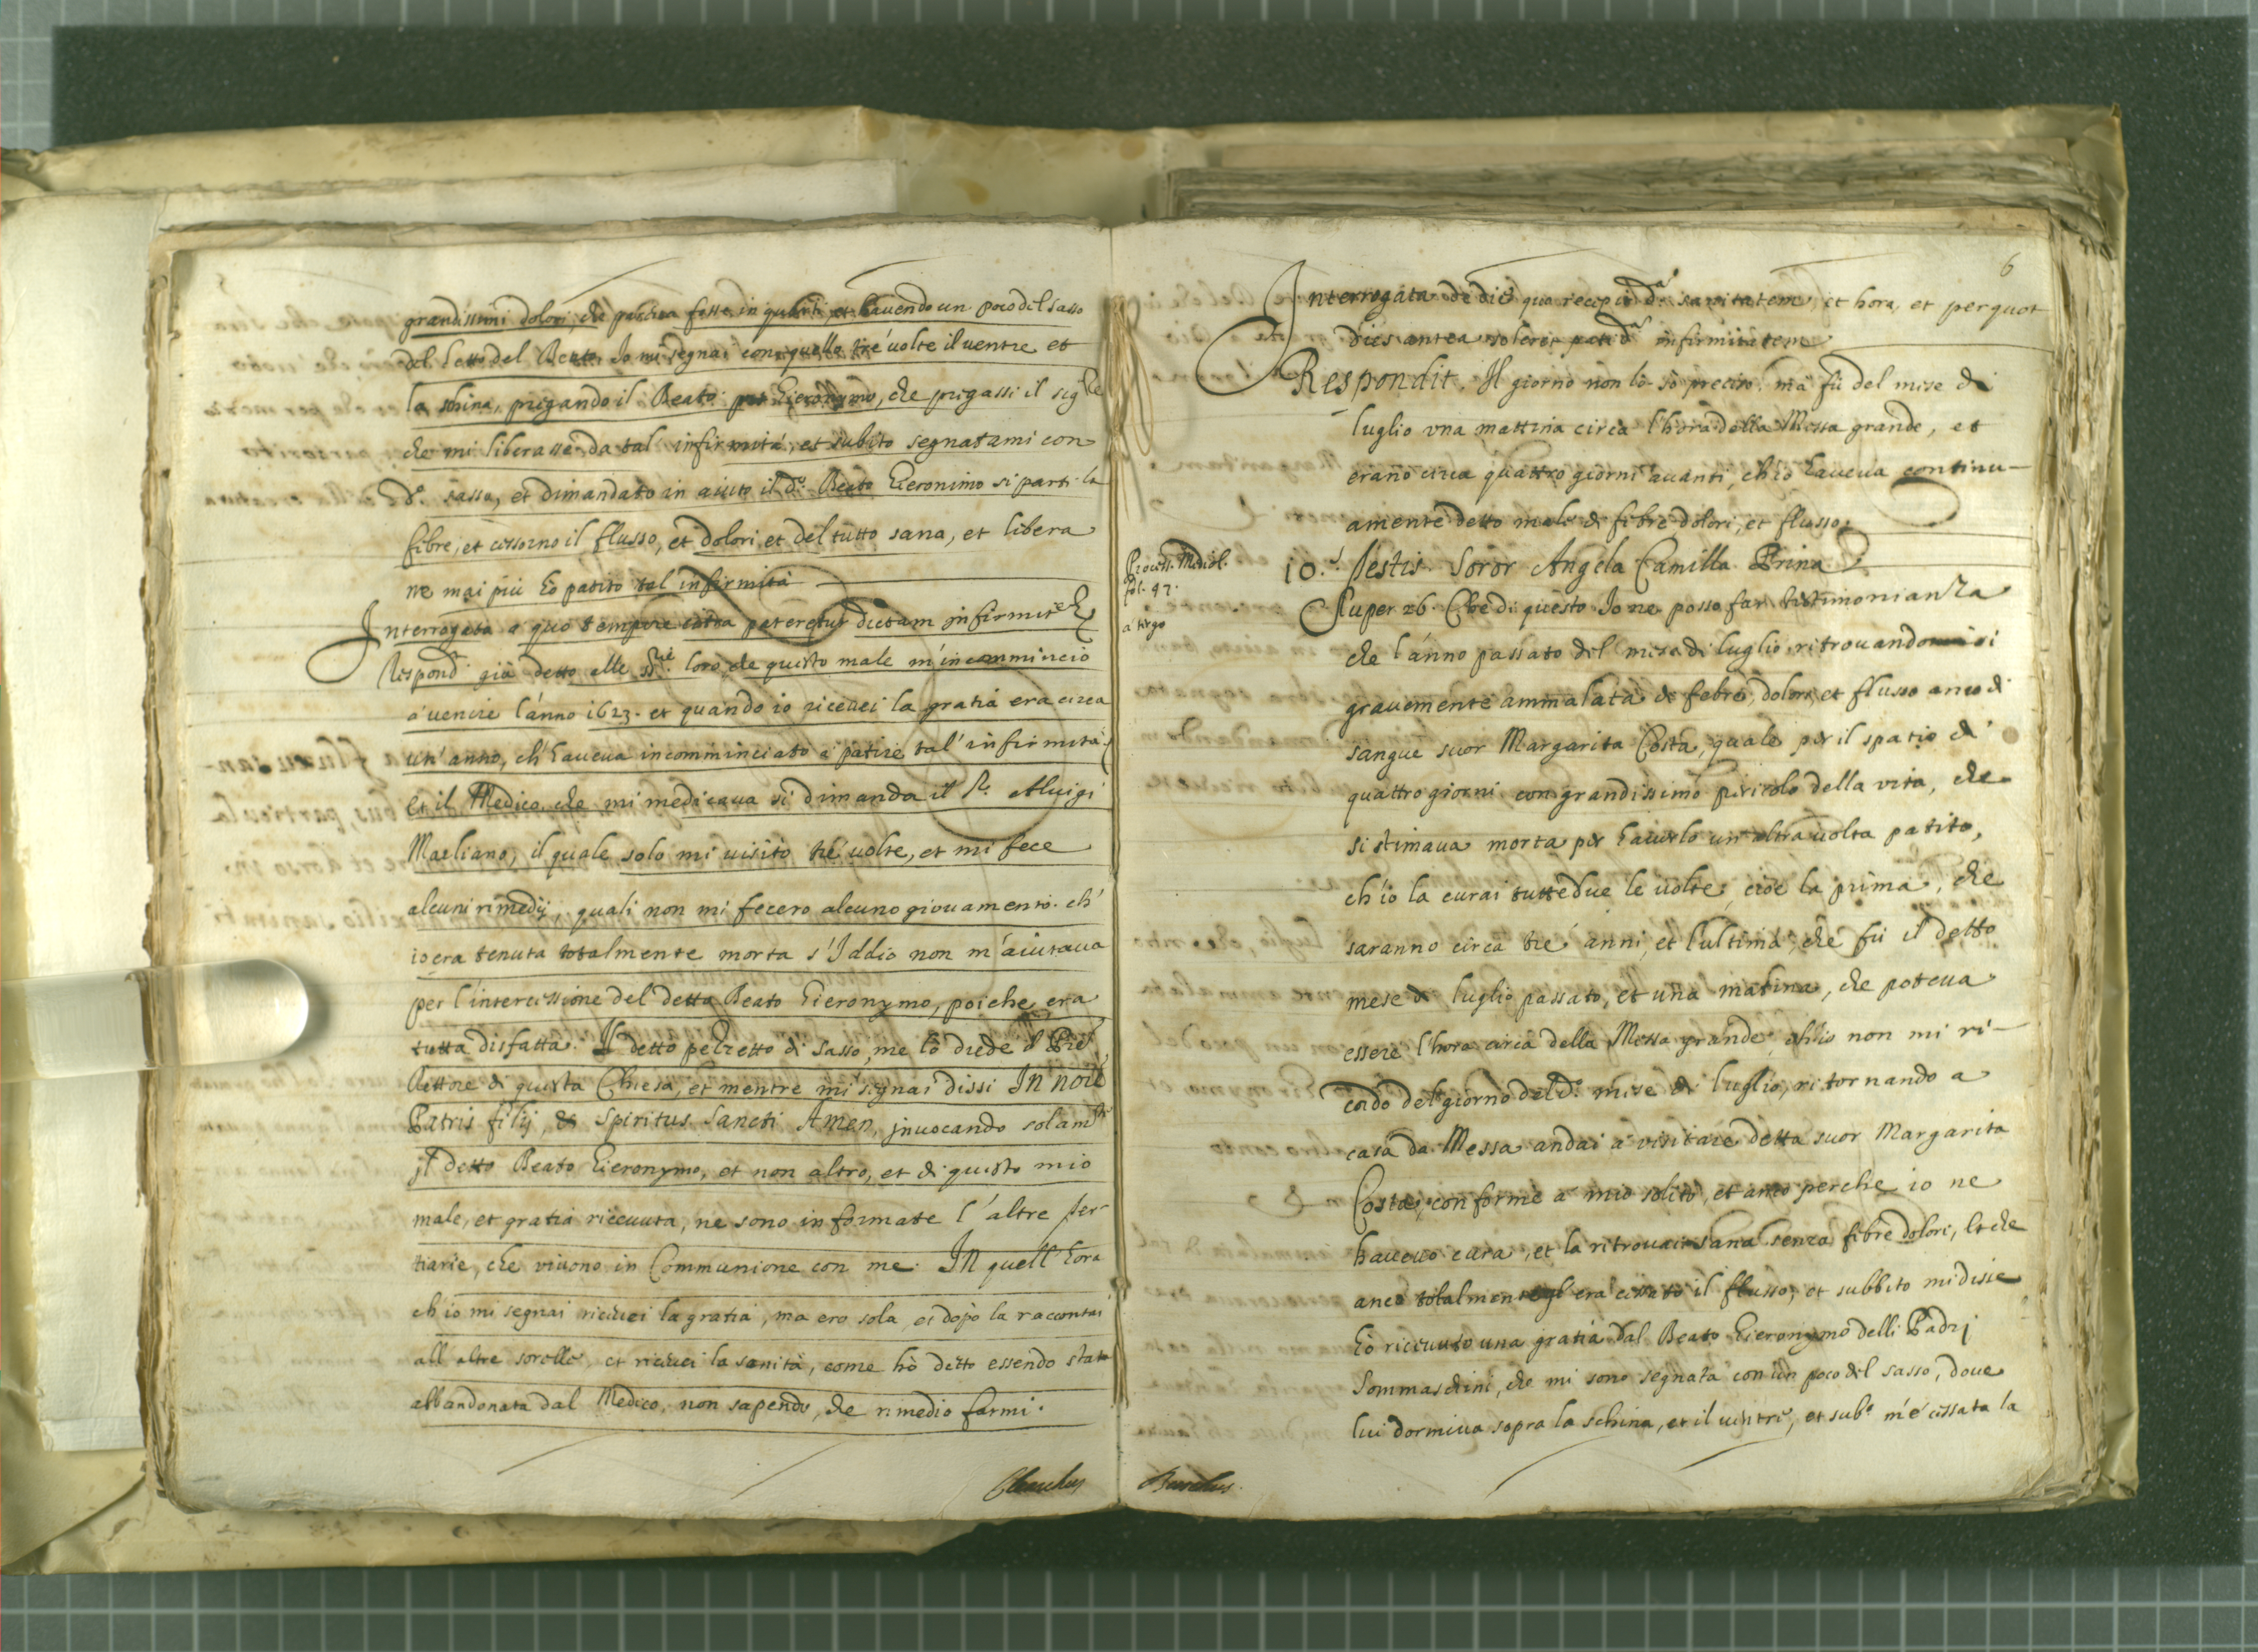 grandissimi dolori, che pativa fosse in quelli, et havendo un poco del sasso
del letto del Beato, Io mi segnai con quello tré uolte il uentre et
la schina, pregando il Beato Hieronymo, che pregassi il sig.re
che mi liberasse da tal' infirmità, et subito segnatami con
d.º sasso, et dimandato in aiuto il d.º Beato Hieronimo si parti la
febre, et cessorno il flusso, et dolori et del tutto sana, et libera
ne mai più hò patito tal infirmità
Interrogata a quo tempore citra pateretur dictam infirmit.
Respond. già detto alle loro che questo male m'incomminciò
a' uenire l'anno 1623. et quando io riceuei la gratia era circa
un' anno, ch'haueua incomminciato a patire tal' infirmità
et il Medico che mi medicaua si dimanda il S.r Aluigi
Marliano, il quale solo mi uisitò tré uolte, et mi fece
alcuni rimedij, quali non mi fecero alcuno giouamento. ch'
io era tenuta totalmente morta s'Iddio non m'aiutaua
per l'intercessione del detto Beato Hieronymo, poiche era
tutta disfatta. Il detto pezzetto di sasso, me lò diede il Pre
Rettore di questa Chiesa, et mentre mi segnai dissi In noie
Patris filij, et Spiritus Sancti Amen, jnuocando solam.te
jl detto Beato Hieronymo, et non altro, et di questo mio
male, et gratia riceuuta, ne sono informate l'altre ter-
tiarie, che viuono in Communione con me. In quell'hora
ch'io mi segnai riceuei la gratia, ma ero sola, et dopò la raccontai
all'altre sorelle, et riceuei la sanità, come hò detto essendo stata
abbandonata dal Medico, non sapendo, che rimedio farmi.
6
Interrogata de die quo recepit d.am sanitatem, et hora, et per quot
dies antea soleret pati d.am infirmitatem
Respondit. Il giorno non lò sò preciso, mà fù del mese di
luglio vna mattina circa l'hora della Messa grande, et
erano circa quattro giorni auanti, ch'io haueua continu-
amente detto male di febre dolori, et flusso.
Process. Mediol.
fol. 47.
a tergo
10.s Testis. Soror Angela Camilla Prina
Super 26. Che di questo Io ne posso far testimonianza
che l'anno passato del mese di luglio ritrouandosi
grauemente ammalata di febre, dolori, et flusso anco di
sangue suor Margarita Costa, quale per il spatio di
quattro giorni con grandissimo pericolo della vita, che
si stimaua morta per hauerlo un'altra uolta patito,
ch'io la curai tutte due le uolte, cioè la prima, che
saranno circa tré anni, et l'ultima, che fù il detto
mese di luglio passato, et una matina, che poteua
essere l'hora circa della Messa grande, ch'io non mi ri-
cordo del giorno del d.º mese di luglio, ritornando a
casa da Messa andai a visitare detta suor Margarita
Costa, conforme a mio solito, et anco perche io ne
haueuo cura, et la ritrouai sana senza febre dolori, et che
anco totalmente gl'era cessato il flusso, et subbito mi disse
hò riceuuto una gratia dal Beato Hieronymo delli Padri
Sommaschini, che mi sono segnata con un poco del sasso, doue
lui dormiua sopra la schina, et il uentre, et sub.º m'è cessata la